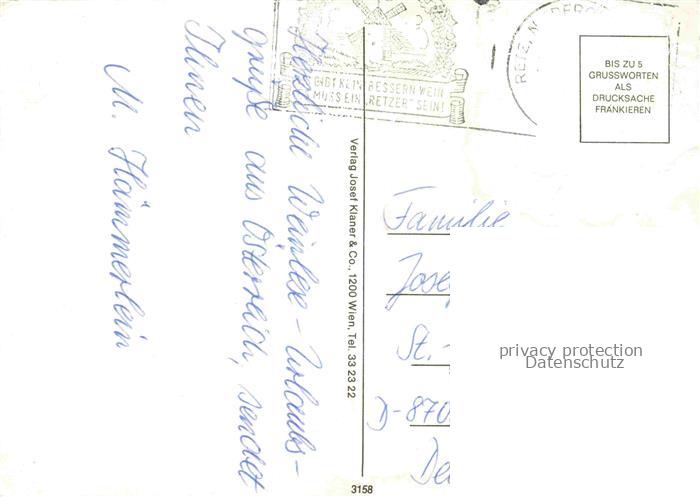 Herzliche Weinlese-Urlaubs-
grüße aus Österreich, sendet
Ihnen
M. Hämmerlein
GIBT KEIN BESSERN WEIN
MUSS EIN "RETZER" SEIN!
RETZ, N
BIS ZU 5
GRUSSWORTEN
ALS
DRUCKSACHE
FRANKIEREN
Verlag Josef Klaner & Co., 1200 Wien, Tel. 33 23 22
Familie
Jose
St.-
D-870
De
privacy protection
Datenschutz
3158